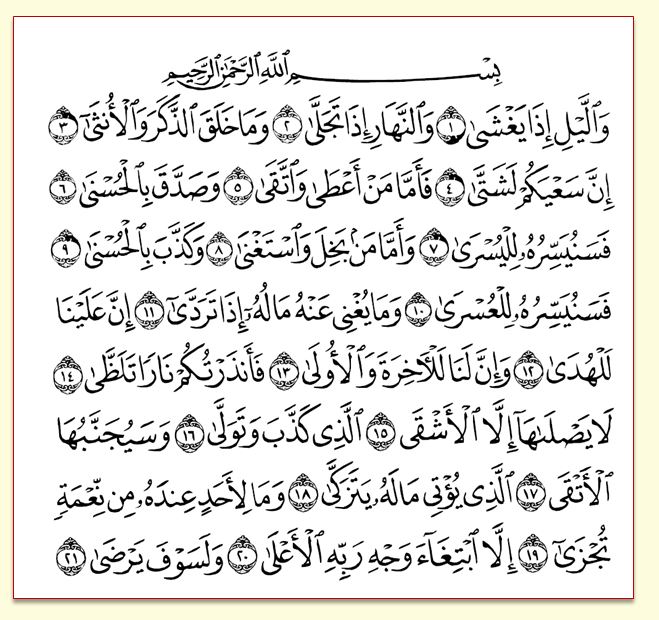 بِسْمِ ٱللَّهِ ٱلرَّحْمَٰنِ ٱلرَّحِيمِ
وَٱلَّيْلِ إِذَا يَغْشَىٰ ١ وَٱلنَّهَارِ إِذَا تَجَلَّىٰ ٢ وَمَا خَلَقَ ٱلذَّكَرَ وَٱلْأُنثَىٰٓ ٣
إِنَّ سَعْيَكُمْ لَشَتَّىٰ ٤ فَأَمَّا مَنْ أَعْطَىٰ وَٱتَّقَىٰ ٥ وَصَدَّقَ بِٱلْحُسْنَىٰ ٦
فَسَنُيَسِّرُهُۥ لِلْيُسْرَىٰ ٧ وَأَمَّا مَنۢ بَخِلَ وَٱسْتَغْنَىٰ ٨ وَكَذَّبَ بِٱلْحُسْنَىٰ ٩
فَسَنُيَسِّرُهُۥ لِلْعُسْرَىٰ ١٠ وَمَا يُغْنِى عَنْهُ مَالُهُۥٓ إِذَا تَرَدَّىٰٓ ١١ إِنَّ عَلَيْنَا
لَلْهُدَىٰ ١٢ وَإِنَّ لَنَا لَلْءَاخِرَةَ وَٱلْأُولَىٰ ١٣ فَأَنذَرْتُكُمْ نَارًا تَلَظَّىٰ ١٤
لَا يَصْلَىٰهَآ إِلَّا ٱلْأَشْقَى ١٥ ٱلَّذِى كَذَّبَ وَتَوَلَّىٰ ١٦ وَسَيُجَنَّبُهَا
ٱلْأَتْقَى ١٧ ٱلَّذِى يُؤْتِى مَالَهُۥ يَتَزَكَّىٰ ١٨ وَمَا لِأَحَدٍ عِندَهُۥ مِن نِّعْمَةٍ
تُجْزَىٰٓ ١٩ إِلَّا ٱبْتِغَآءَ وَجْهِ رَبِّهِ ٱلْأَعْلَىٰ ٢٠ وَلَسَوْفَ يَرْضَىٰ ٢١